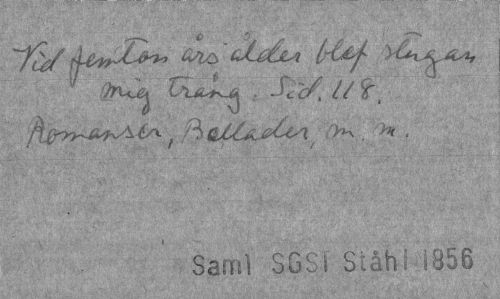 Vid femton års ålder blef stugan
mig trång. Sid. 118.
Romanser, Ballader, m. m.
Saml SGSl Ståhl 1856